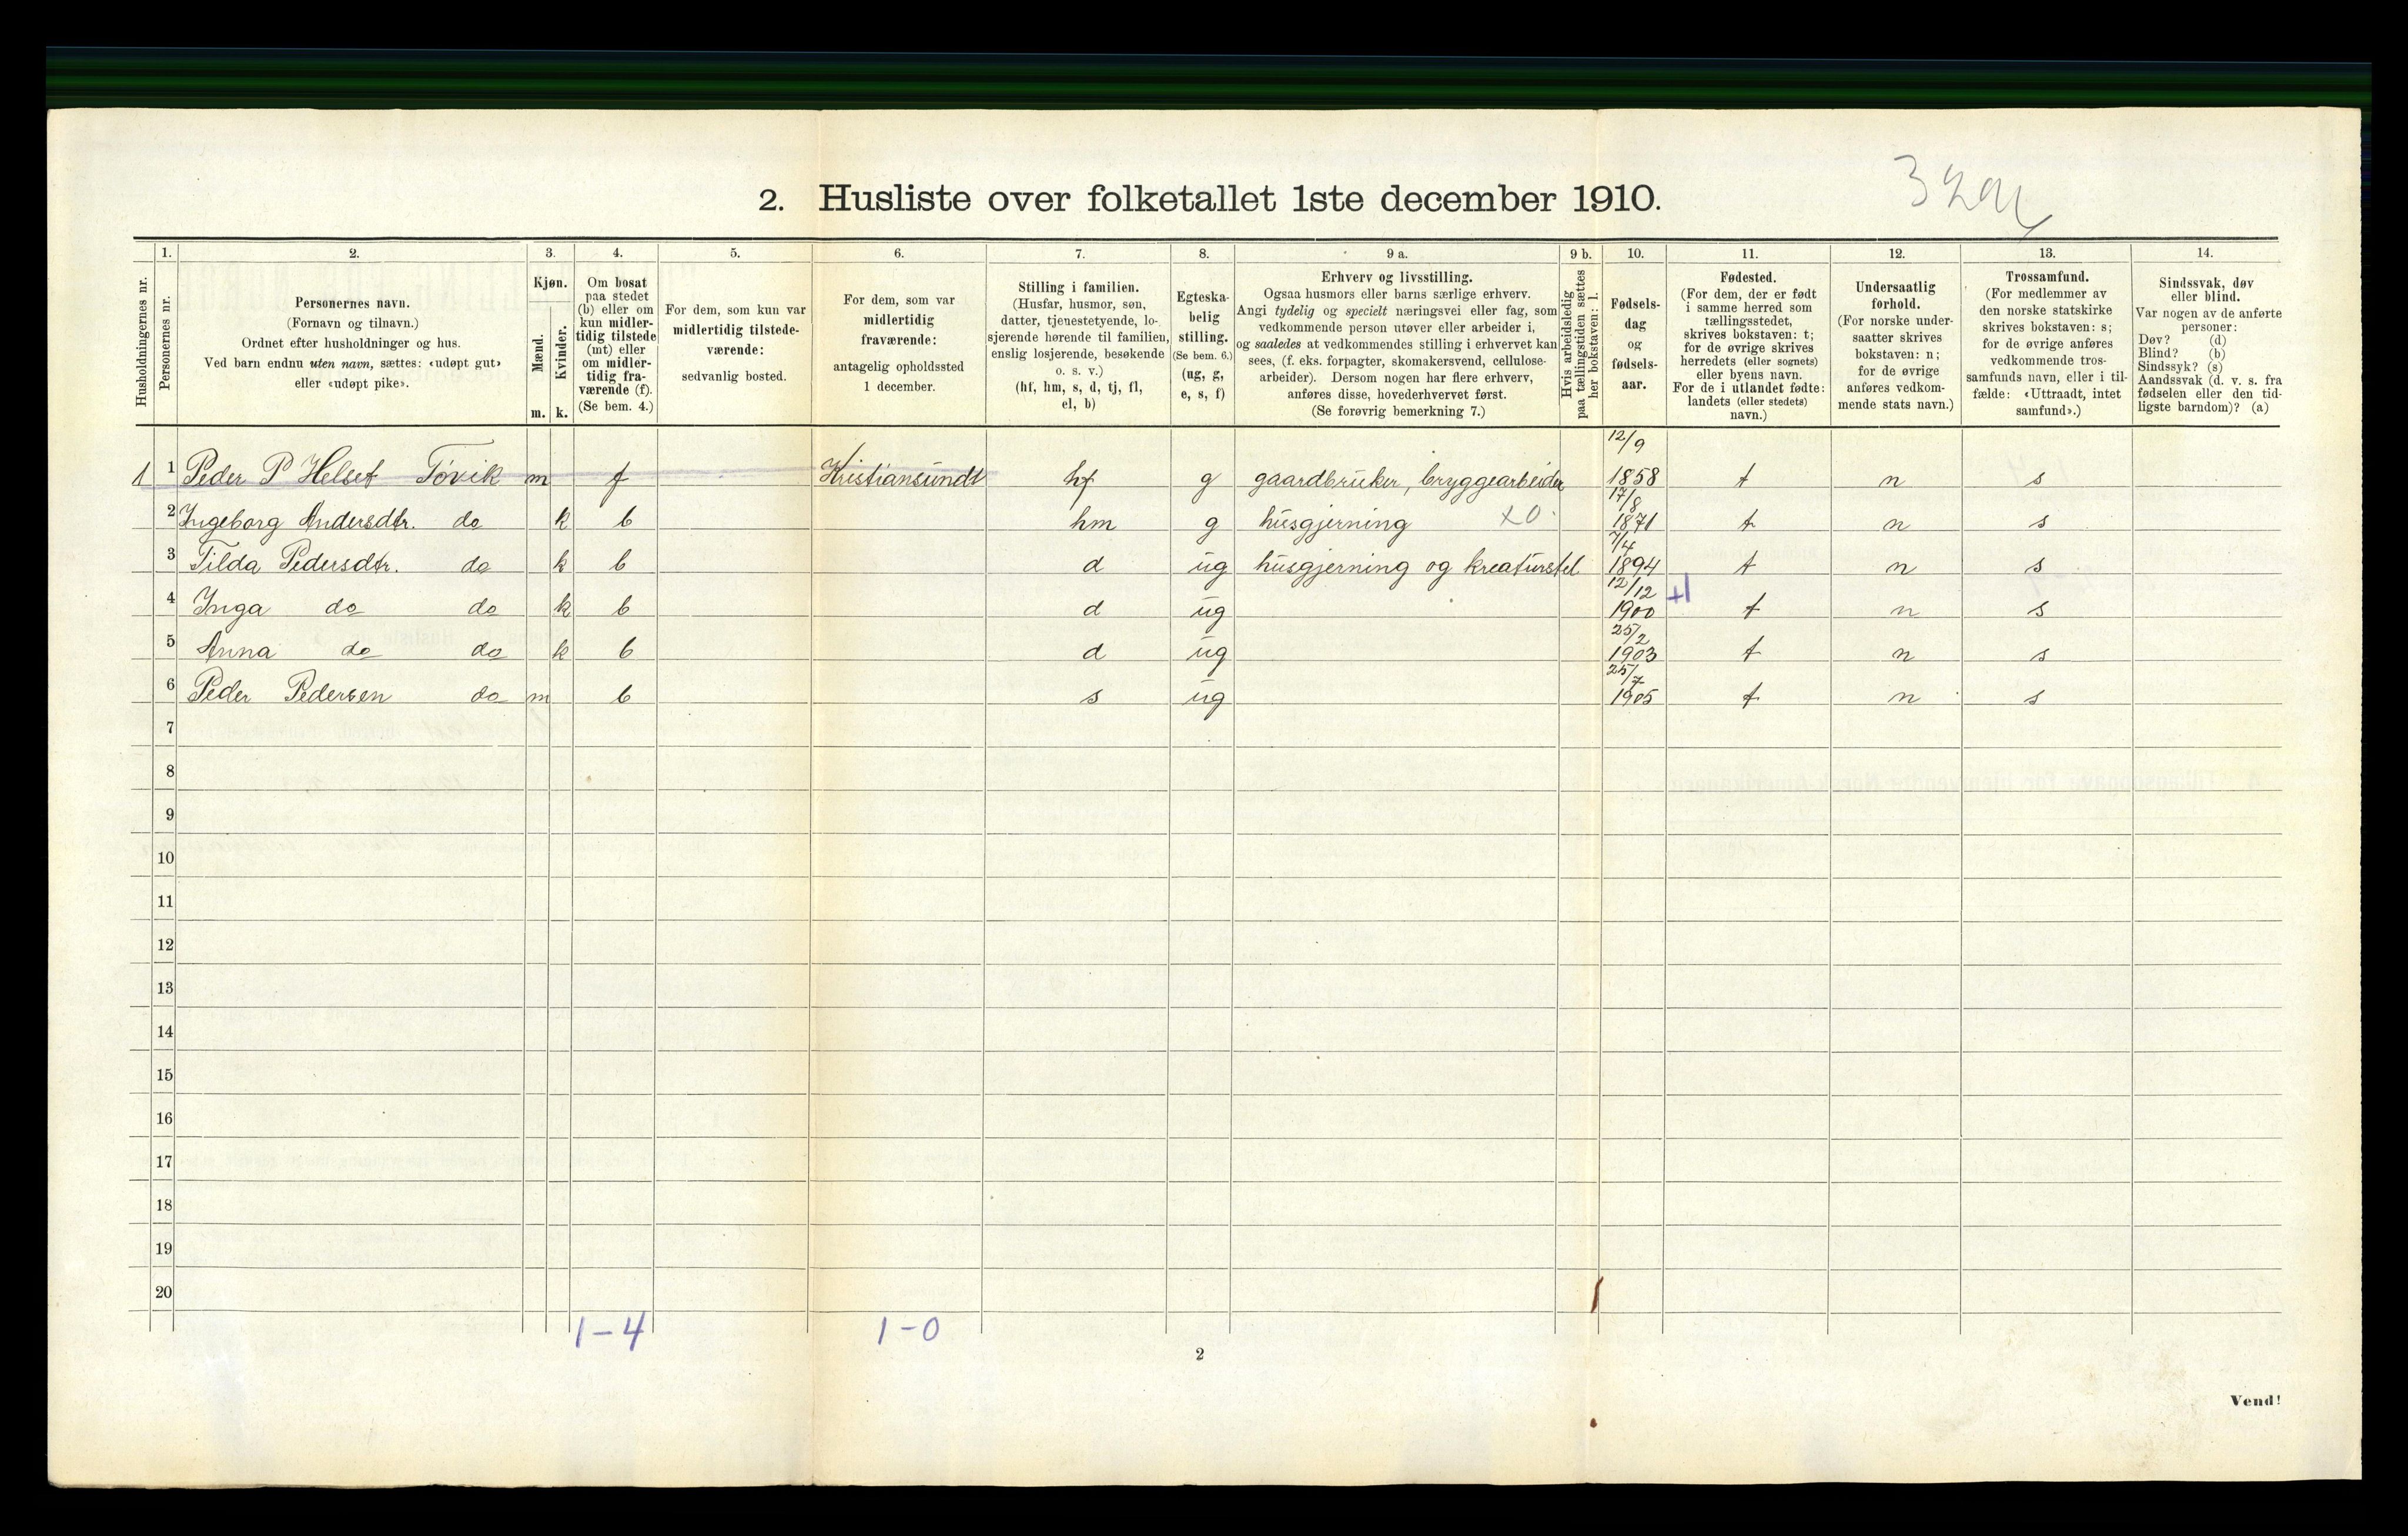 2. Husliste over folketallet 1ste december 1910.
Husholdningernes nr.
1.
Personernes nr.
2.
Personernes navn.
(Fornavn og tilnavn.)
Ordnet efter husholdninger og hus.
Ved barn endnu uten navn, sættes: «udøpt gut»
eller «udøpt pike».
3.
Kjøn.
Mænd.
Kvinder.
m. k.
4.
Om bosat
paa stedet
(b) eller om
kun midler-
tidig tilstede
(mt) eller
om midler-
tidig fra-
værende (f).
(Se bem. 4.)
5.
For dem, som kun var
midlertidig tilstede-
værende:
sedvanlig bosted.
6.
For dem, som var
midlertidig
fraværende:
antagelig opholdssted
1 december.
7.
Stilling i familien.
(Husfar, husmor, søn,
datter, tjenestetyende, lo-
sjerende hørende til familien,
enslig losjerende, besøkende
o. s. v.)
(hf, hm, s, d, tj, fl,
el, b)
8.
Egteska-
belig
stilling.
(Se bem. 6.)
(ug, g,
e, s, f)
9 a.
Erhverv og livsstilling.
Ogsaa husmors eller barns særlige erhverv.
Angi tydelig og specielt næringsvei eller fag, som
vedkommende person utøver eller arbeider i,
og saaledes at vedkommendes stilling i erhvervet kan
sees, (f. eks. forpagter, skomakersvend, cellulose-
arbeider). Dersom nogen har flere erhverv,
anføres disse, hovederhvervet først.
(Se forøvrig bemerkning 7.)
9 b.
Hvis arbeidsledig
paa tællingstiden sættes
her bokstaven: l.
10.
Fødsels-
dag
og
fødsels-
aar.
11.
Fødested.
(For dem, der er født
i samme herred som
tællingsstedet,
skrives bokstaven: t;
for de øvrige skrives
herredets (eller sognets)
eller byens navn.
For de i utlandet fødte:
landets (eller stedets)
navn.)
12.
Undersaatlig
forhold.
(For norske under-
saatter skrives
bokstaven: n;
for de øvrige
anføres vedkom-
mende stats navn.)
13.
Trossamfund.
(For medlemmer av
den norske statskirke
skrives bokstaven: s;
for de øvrige anføres
vedkommende tros-
samfunds navn, eller i til-
fælde: «Uttraadt, intet
samfund».)
14.
Sindssvak, døv
eller blind.
Var nogen av de anførte
personer:
Døv? (d)
Blind? (b)
Sindssyk? (s)
Aandssvak (d. v. s. fra
fødselen eller den tid-
ligste barndom)? (a)
12/9
1 1 Peder P Helset Tøvik m f Kristiansundt hf g gaardbruker, bryggearbeider 1858 t n s
17/8
2 Ingeborg Andersdtr. do k b hm g husgjerning x0 1871 t n s
7/4
3 Tilda Pedersdtr. do k b d ug husgjerning og kreaturstel 1894 t n s
12/12
4 Inga do do k b d ug 1900 +1 t n s
25/2
5 Anna do do k b d ug 1903 t n s
25/7
6 Peder Pedersen do m b s ug 1905 t n s
7
8
9
10
11
12
13
14
15
16
17
18
19
20
1-4 1-0
2
Vend!